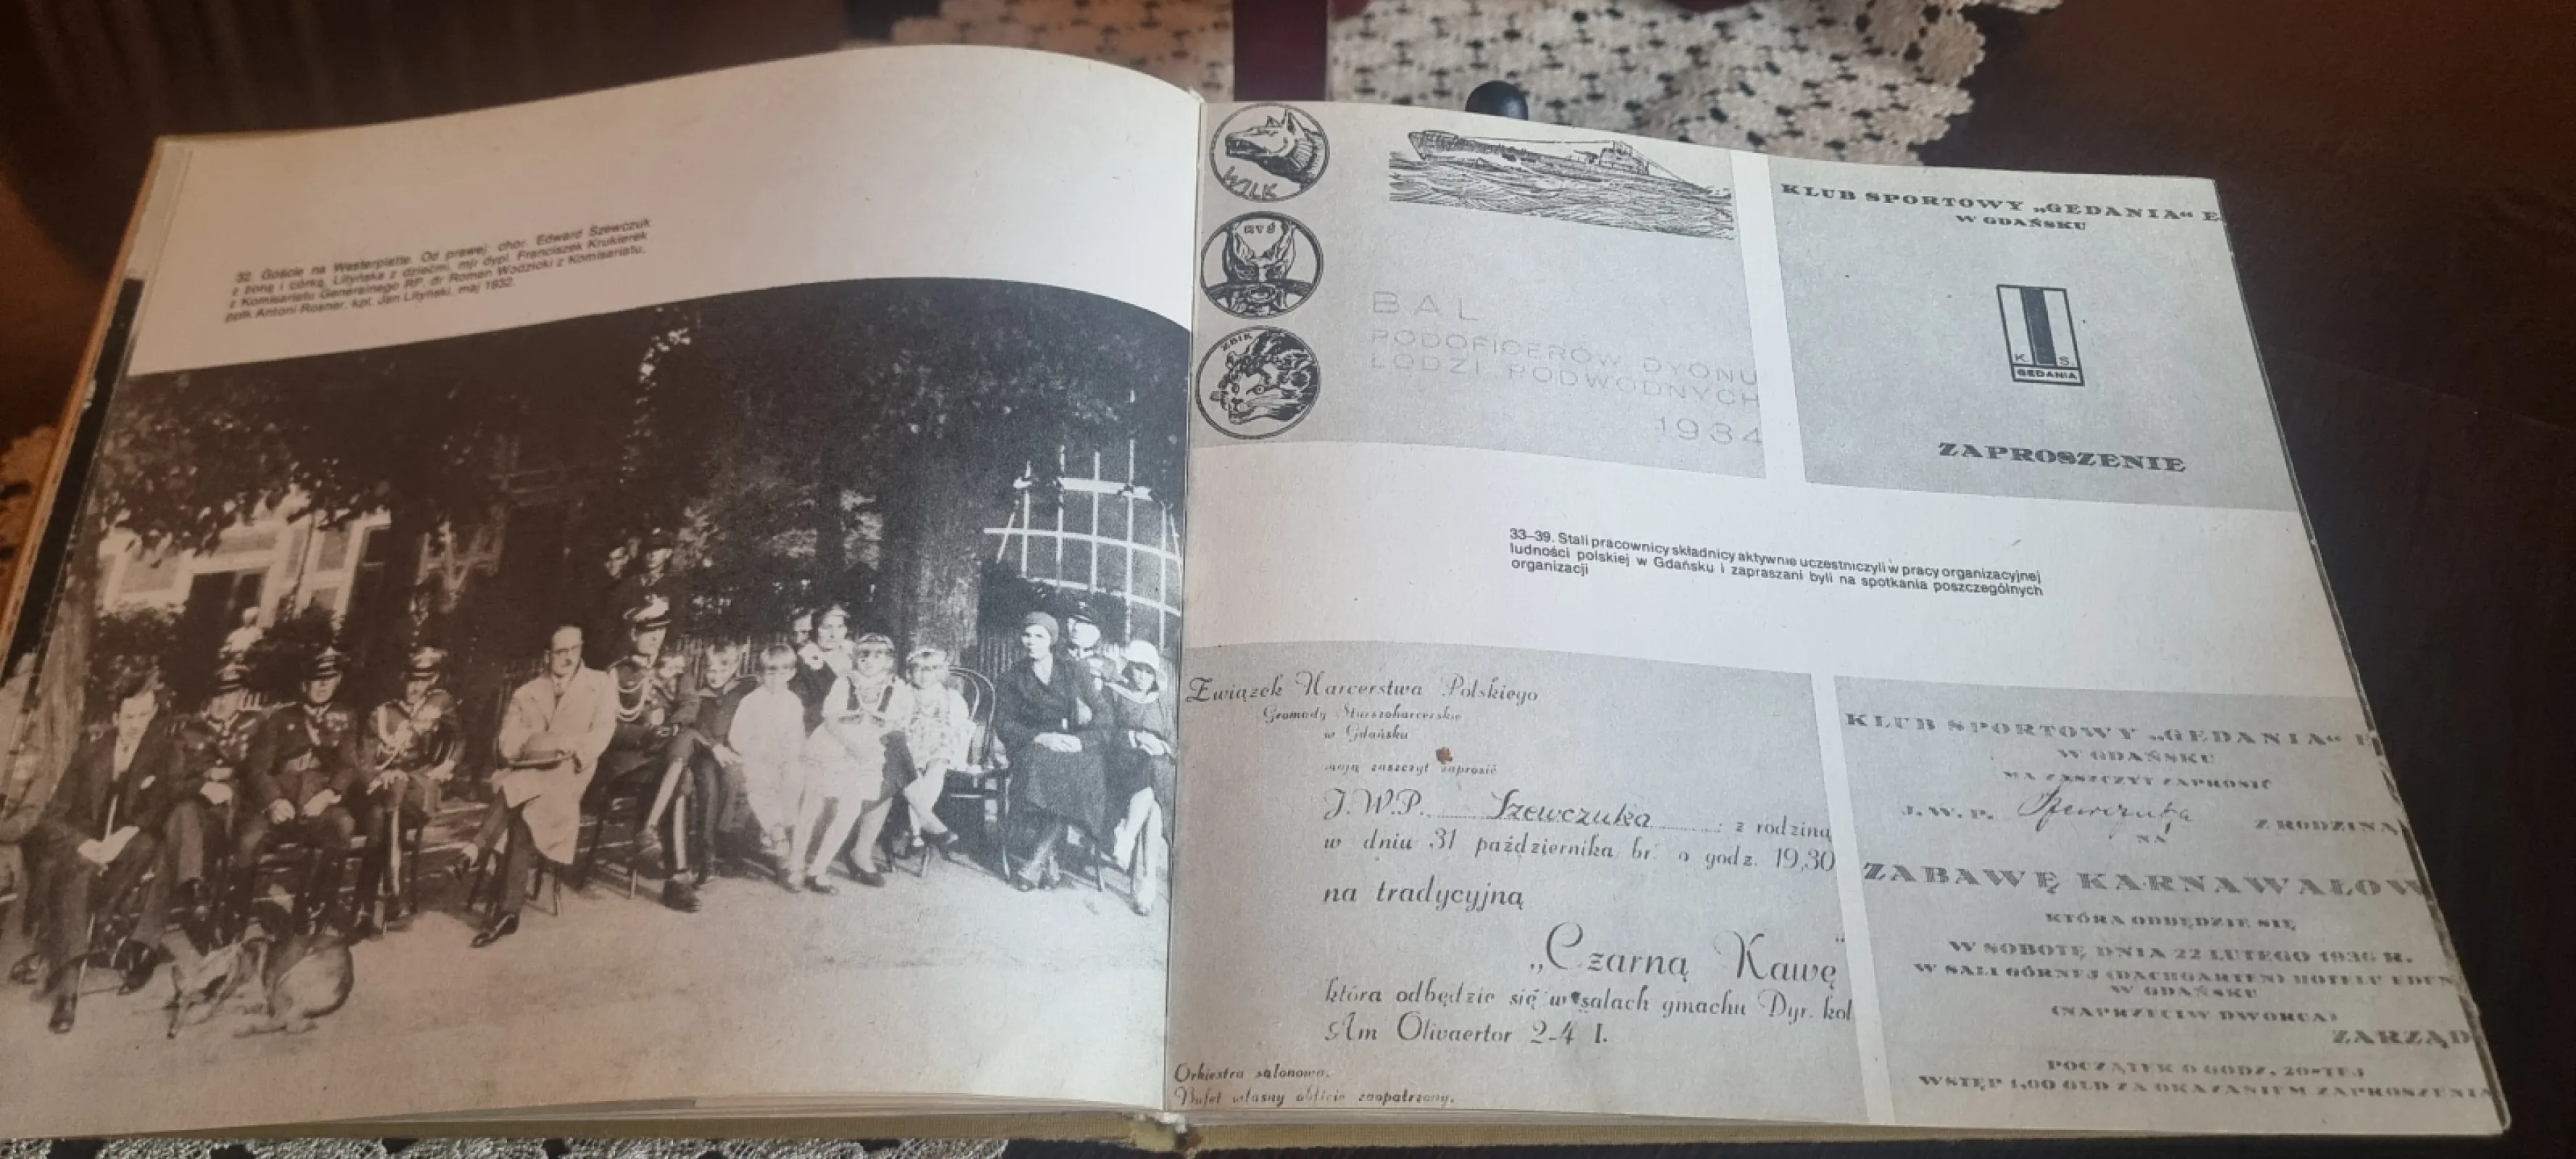 32. Goście na Westerplatte. Od prawej: chor. Edward Szewczuk
z żoną i córką, Lityńska z dziećmi, mjr dypl. Franciszek Krukierek
z Komisariatu Generalnego RP, dr Roman Wodzicki z Komisariatu,
ppłk Antoni Rosner, kpt. Jan Lityński, maj 1932.
WILK
RYŚ
ŻBIK
BAL
PODOFICERÓW DYONU
ŁODZI PODWODNYCH
1934
KLUB SPORTOWY „GEDANIA“ E
W GDAŃSKU
K. S.
GEDANIA
ZAPROSZENIE
33–39. Stali pracownicy składnicy aktywnie uczestniczyli w pracy organizacyjnej
ludności polskiej w Gdańsku i zapraszani byli na spotkania poszczególnych
organizacji
Związek Harcerstwa Polskiego
Gromady Starszoharcerskie
w Gdańsku
mają zaszczyt zaprosić
J.W.P. Szewczuka z rodziną
w dniu 31 października br. o godz. 19,30
na tradycyjną
„Czarną Kawę“
która odbędzie się w salach gmachu Dyr. kol
Am Olivaertor 2-4 I.
Orkiestra salonowa.
Bufet własny obficie zaopatrzony.
KLUB SPORTOWY „GEDANIA“ E
W GDAŃSKU
MA ZASZCZYT ZAPROSIĆ
J. W. P. Szewczuka Z RODZINĄ
NA
ZABAWĘ KARNAWAŁOW
KTÓRA ODBĘDZIE SIĘ
W SOBOTĘ DNIA 22 LUTEGO 1936 R.
W SALI GÓRNEJ (DACHGARTEN) HOTELU EDEN
W GDAŃSKU
(NAPRZECIW DWORCA)
ZARZĄD
POCZĄTEK O GODZ. 20-TEJ
WSTĘP 1,00 GLD ZA OKAZANIEM ZAPROSZENIA